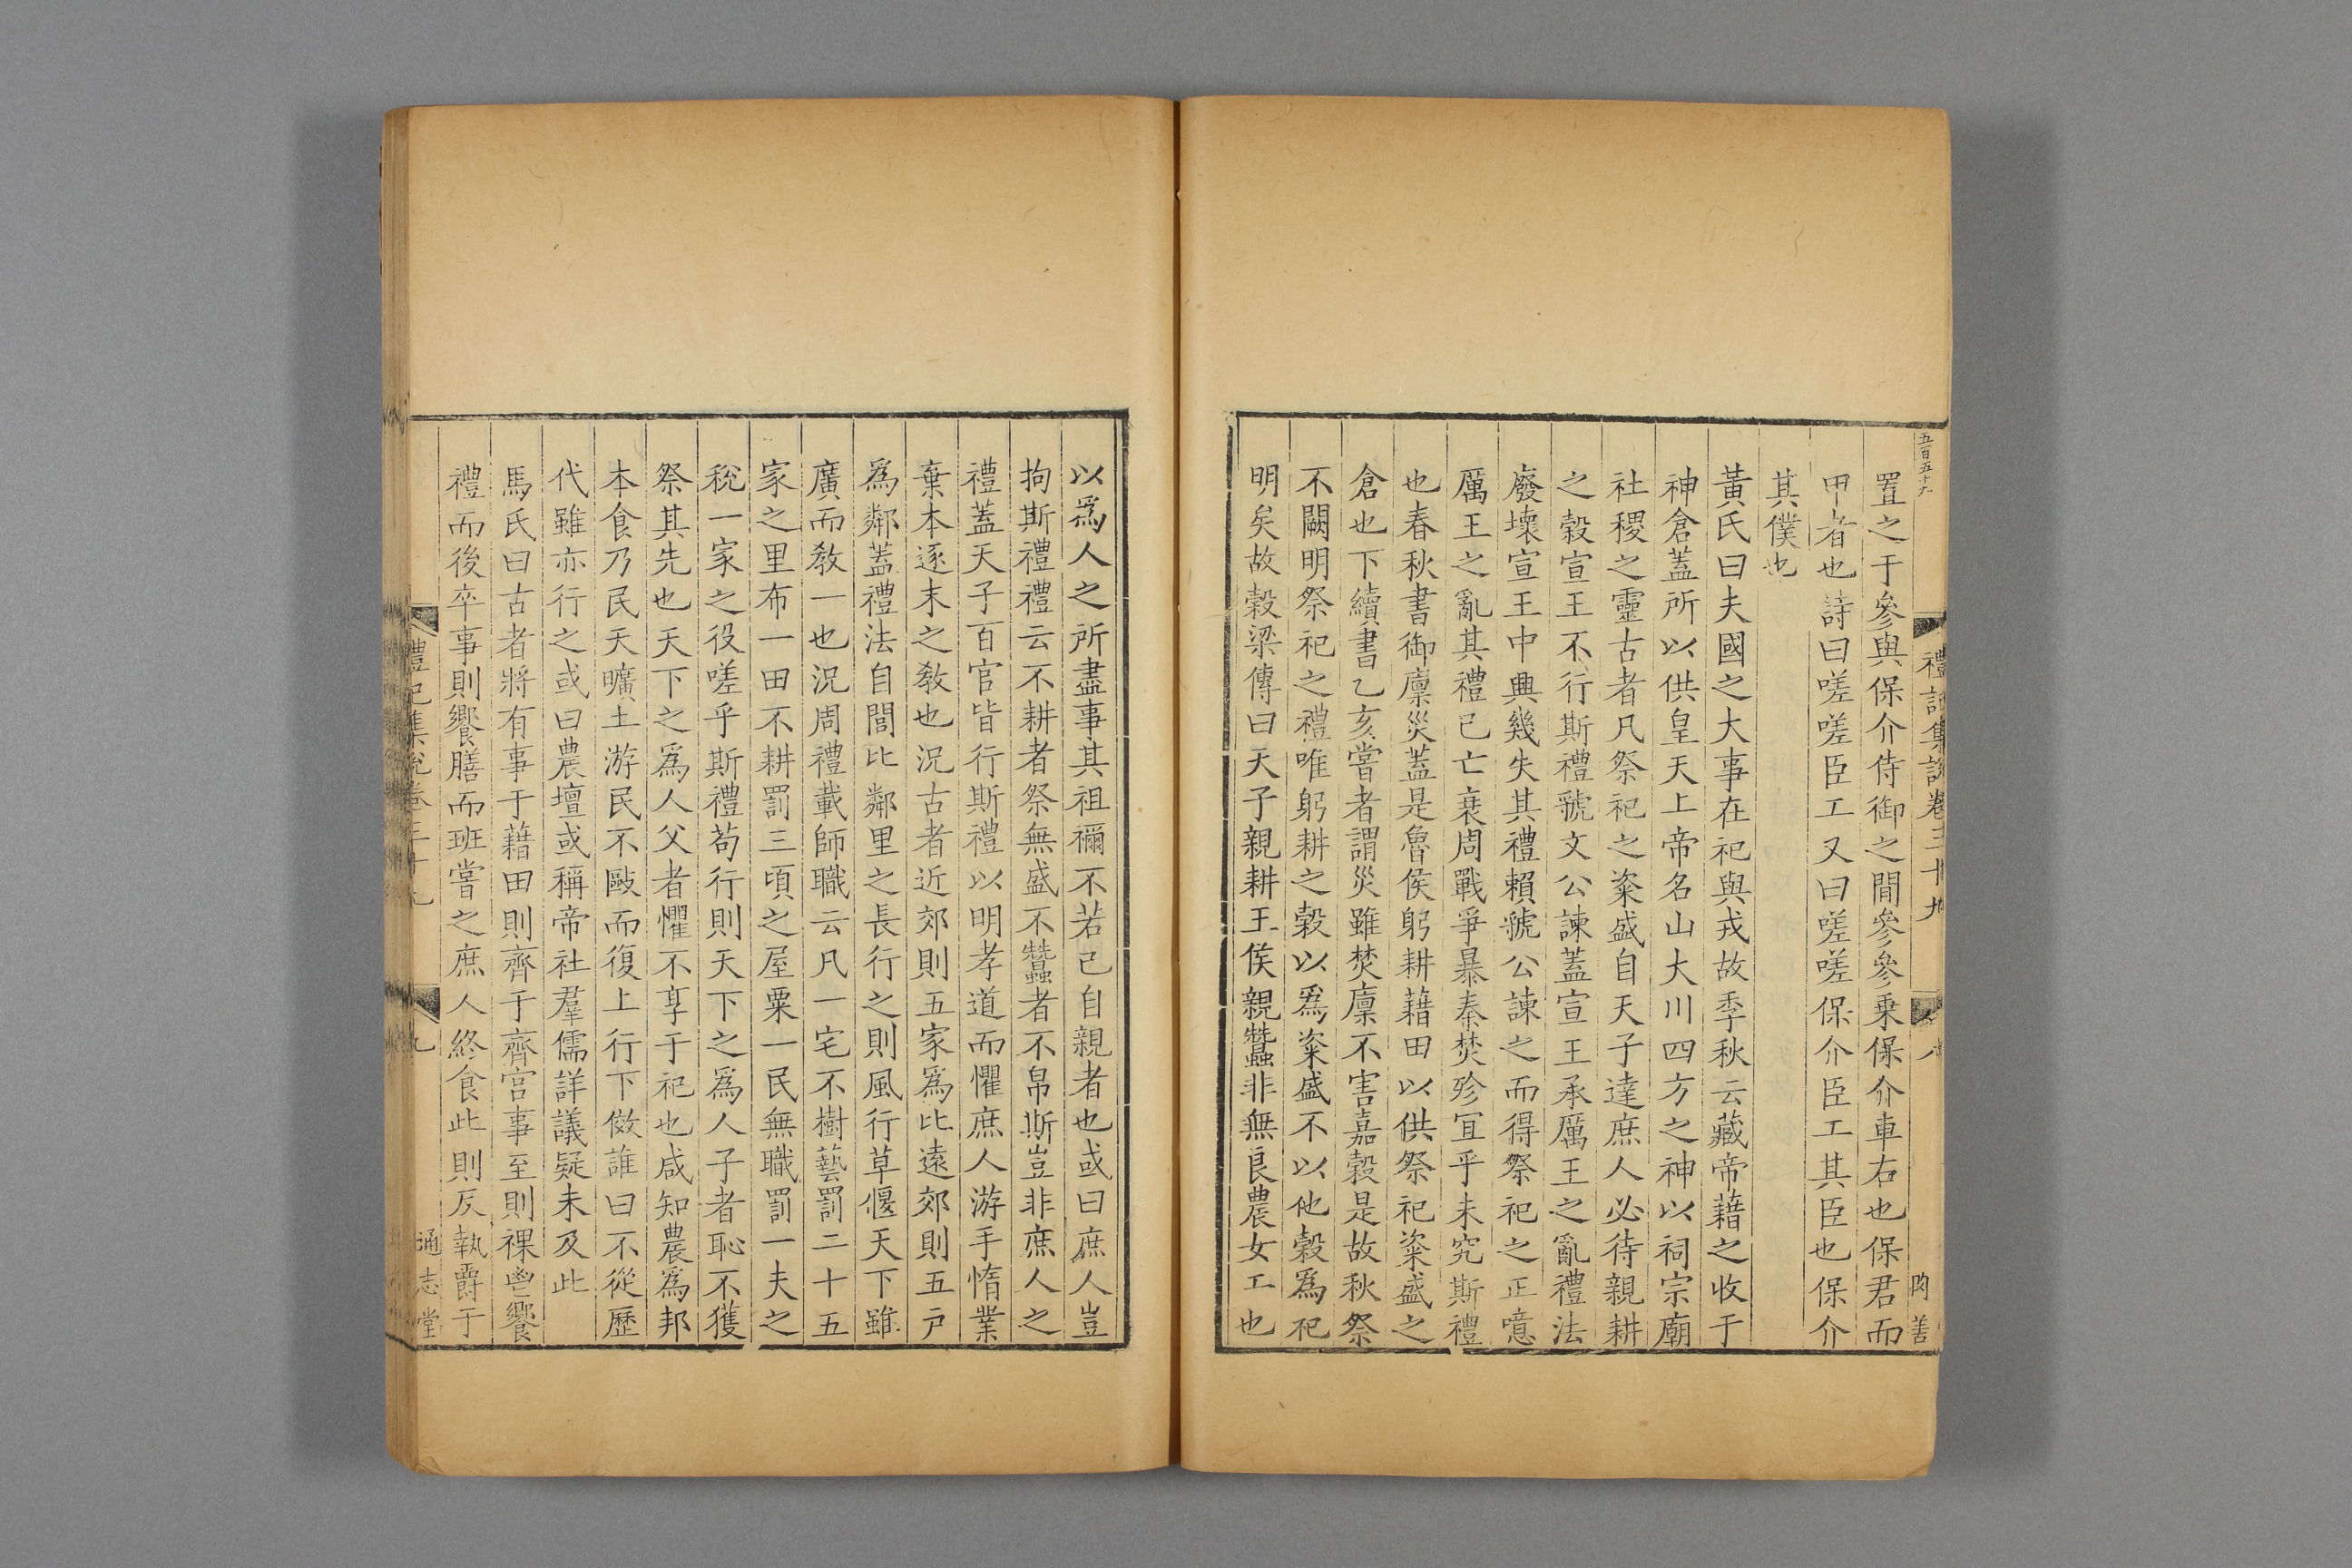 五百五十六
禮記集說卷三十九
八
陶善
置之于參與保介侍御之間參參乗保介車右也保君而
甲者也詩曰嗟嗟臣工又曰嗟嗟保介臣工其臣也保介
其僕也
黃氏曰夫國之大事在祀與戎故季秋云藏帝藉之收于
神倉蓋所以供皇天上帝名山大川四方之神以祠宗廟
社稷之靈古者凡祭祀之粢盛自天子達庶人必待親耕
之穀宣王不行斯禮虢文公諫蓋宣王承厲王之亂禮法
廢壞宣王中興幾失其禮賴虢公諫之而得祭祀之正噫
厲王之亂其禮已亡衰周戰爭暴秦焚殄宜乎未究斯禮
也春秋書御廩災蓋是魯侯躬耕藉田以供祭祀粢盛之
倉也下續書乙亥嘗者謂災雖焚廩不害嘉穀是故秋祭
不闕明祭祀之禮唯躬耕之穀以爲粢盛不以他穀爲祀
明矣故穀梁傳曰天子親耕王侯親蠶非無良農女工也
以爲人之所盡事其祖禰不若己自親者也或曰庶人豈
拘斯禮禮云不耕者祭無盛不蠶者不帛斯豈非庶人之
禮蓋天子百官皆行斯禮以明孝道而懼庶人游手惰業
棄本逐末之敎也況古者近郊則五家爲比遠郊則五戸
爲鄰蓋禮法自閭比鄰里之長行之則風行草偃天下雖
廣而敎一也況周禮載師職云凡一宅不樹藝罰二十五
家之里布一田不耕罰三頃之屋粟一民無職罰一夫之
稅一家之役嗟乎斯禮苟行則天下之爲人子者恥不獲
祭其先也天下之爲人父者懼不享于祀也咸知農爲邦
本食乃民天曠土游民不敺而復上行下傚誰曰不從歷
代雖亦行之或曰農壇或稱帝社羣儒詳議疑未及此
馬氏曰古者將有事于藉田則齊于齊宮事至則祼鬯饗
禮而後卒事則饗膳而班嘗之庶人終食此則反執爵于
禮記集說卷三十九
九
通志堂